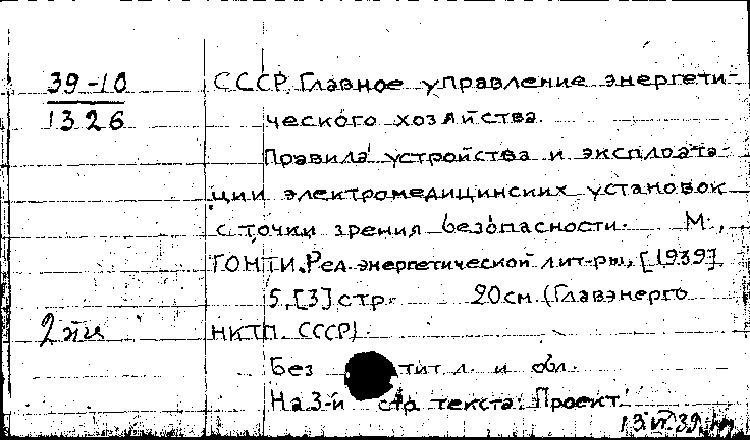 39-10
1326
СССР. Главное управление энергети-
ческого хозяйства.
Правила устройства и эксплоата-
ции электромедицинских установок
с точки зрения безопасности. М.,
ГОНТИ. Ред. энергетической лит-ры, [1939]
5, [3] стр. 20см. (Главэнерго
НКТП. СССР).
Без тит л. и обл.
На 3-й стр текста: Проект.